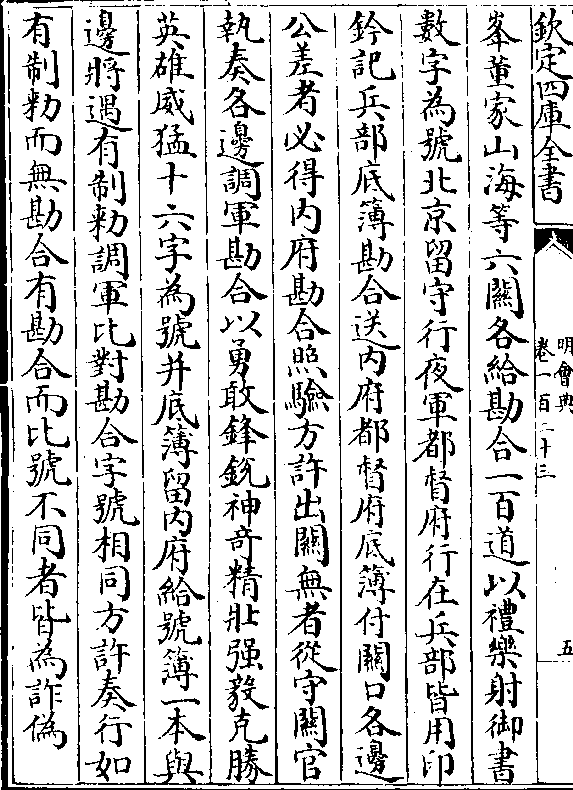 欽定四庫全書
明會典
卷一百二十三
五
峯董家山海等六關各給勘合一百道以禮樂射御書
數字為號北京留守行夜軍都督府行在兵部皆用印
鈐記兵部底簿勘合送内府都督府底簿付關口各邊
公差者必得内府勘合照驗方許出關無者從守關官
執奏各邊調軍勘合以勇敢鋒銳神竒精壯强毅克勝
英雄威猛十六字為號并底簿留内府給號簿一本與
邊將遇有制勑調軍比對勘合字號相同方許奏行如
有制勑而無勘合有勘合而比號不同者皆為詐偽